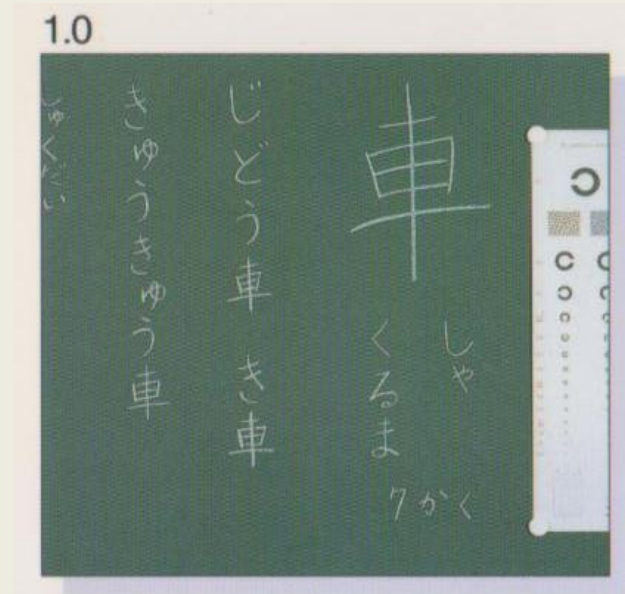 1.0
車
しゃ
くるま
7かく
じどう車 き車
きゅうきゅう車
しゅくだい